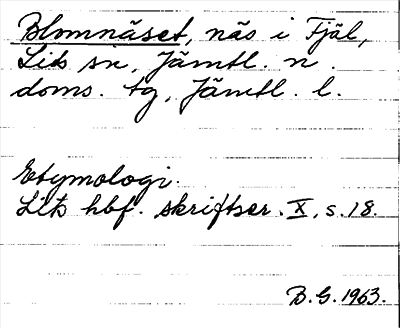 Blomnäset, näs i Fjäl,
Lits sn, Jämtl. n.
doms. tg, Jämtl. l.
Etymologi.
Lits hbf. skriftser. X, s. 18.
B.G. 1963.